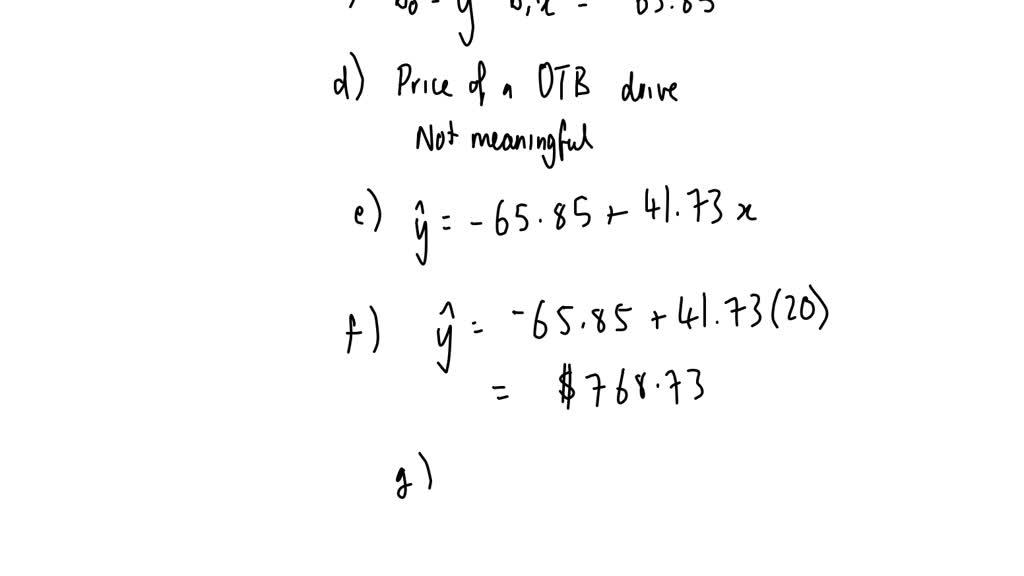 b₀ = y - b₁x = -65.85
d) Price of a OTB drive
Not meaningful
e) ŷ = -65.85 + 41.73 x
f) ŷ = -65.85 + 41.73 (20)
= $768.73
g)